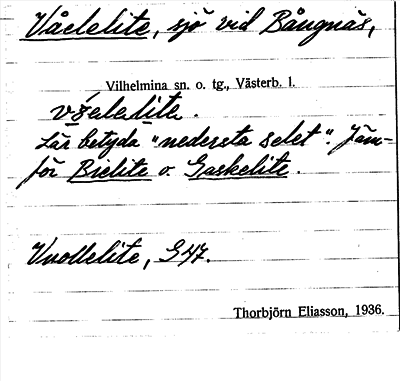 Våclelite, sjö vid Bångnäs,
Vilhelmina sn. o. tg., Västerb. l.
Lär betyda "nedersta selet". Jäm-
för Bielite o. Gaskelite.
Vuollelite, G47.
Thorbjörn Eliasson, 1936.